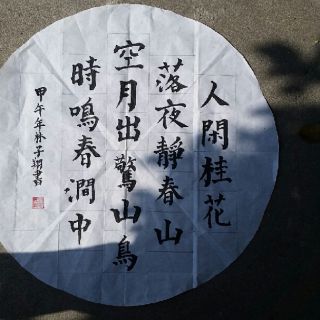 人閑桂花
落夜靜春山
空月出驚山鳥
時鳴春澗中
甲午年
書